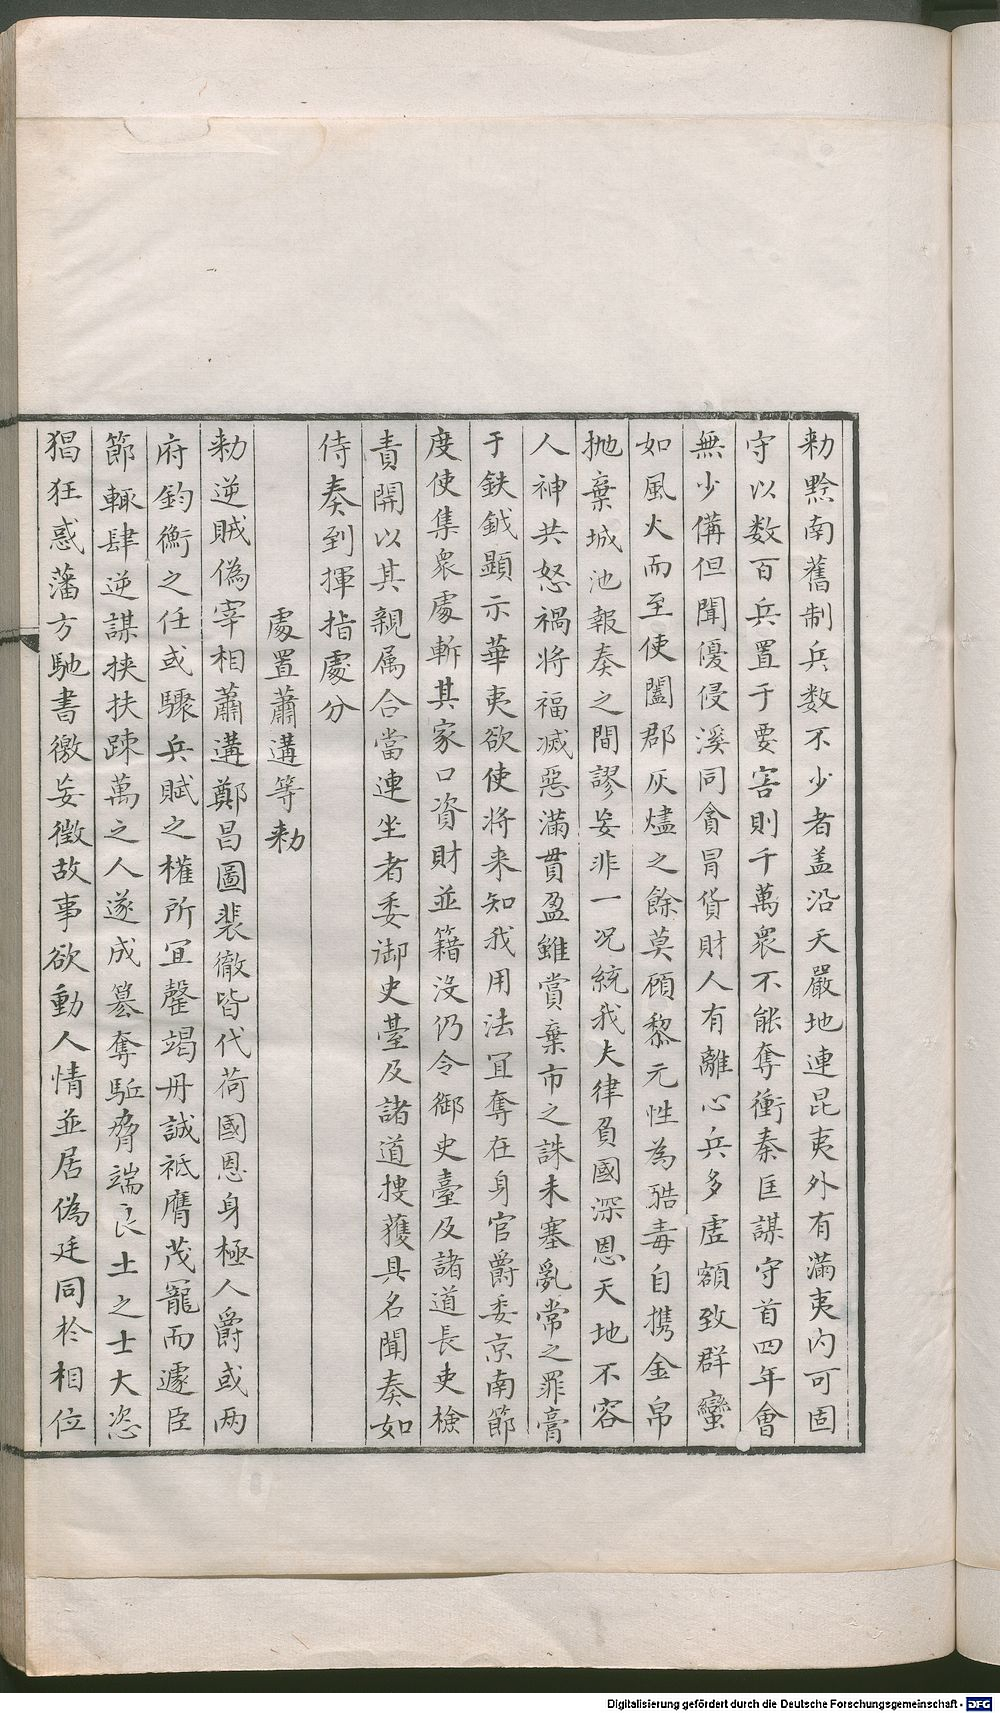 勑黔南舊制兵数不少者盖沿天嚴地連昆夷外有滿夷内可固
守以数百兵置于要害則千萬衆不能奪衝秦匡謀守首四年會
無少備但聞優侵溪同貪冐貨財人有離心兵多虛額致群蠻
如風火而至使闔郡灰燼之餘莫顧黎元性為酷毒自携金帛
抛棄城池報奏之間謬妄非一况統我夫律負國深恩天地不容
人神共怒禍将福滅惡滿貫盈雖賞棄市之誅未塞亂常之罪膏
于鈇鉞顯示華夷欲使将来知我用法冝奪在身官爵委京南節
度使集衆處斬其家口資財並籍没仍令御史臺及諸道長吏檢
責開以其親属合當連坐者委御史臺及諸道捜獲具名聞奏如
侍奏到揮指處分
處置蕭遘等勑
勑逆賊偽宰相蕭遘鄭昌圖裴徹皆代荷國恩身極人爵或两
府鈞衡之任或驟兵賦之權所冝罄竭丹誠祗膺茂寵而遽臣
節輙肆逆謀挟扶踈萬之人遂成簒奪駈脅端良士之士大恣
猖狂惑藩方馳書徼妄徴故事欲動人情並居偽廷同於相位
Digitalisierung gefördert durch die Deutsche Forschungsgemeinschaft - DFG